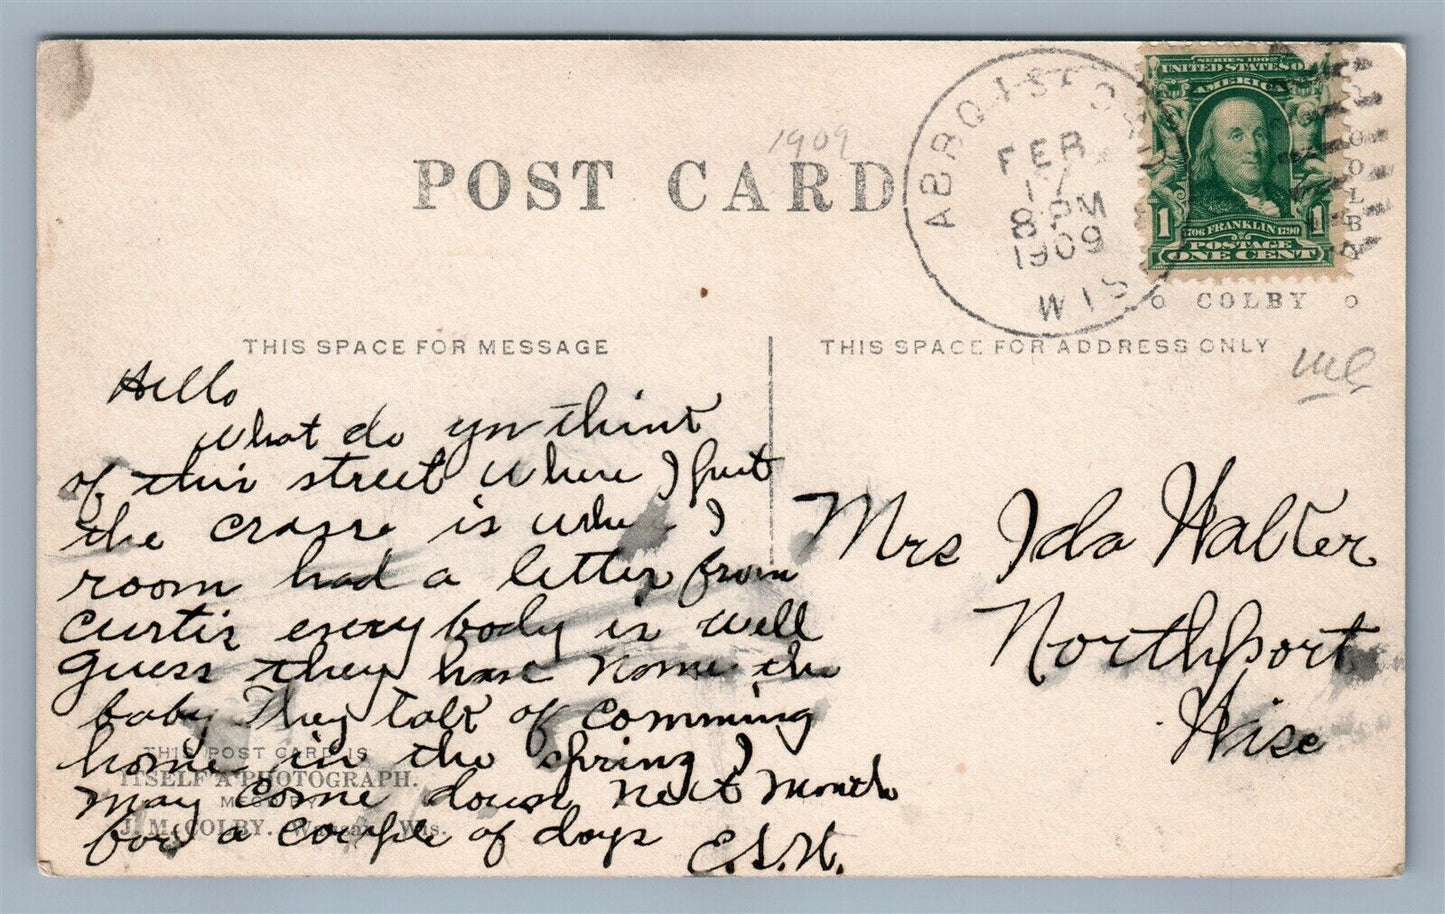 1909
POST CARD
ABBOTSFORD
FEB
17
8 PM
1909
WIS
SERIES 1902
UNITED STATES OF
AMERICA
1 1
1706 FRANKLIN 1790
POSTAGE
ONE CENT
COLBY
o COLBY o
THIS SPACE FOR MESSAGE
THIS SPACE FOR ADDRESS ONLY
Hello
What do you think
of this street where I put
the crosse is where I
room had a letter from
Curtis every body is well
guess they have name the
baby They talk of comming
home in the spring I
may come down next month
for a couple of days
E.S.W.
THIS POST CARD IS
ITSELF A PHOTOGRAPH.
MADE BY
J. M. COLBY, Wausau, Wis.
Mrs Ida Walter
Northport
Wisc